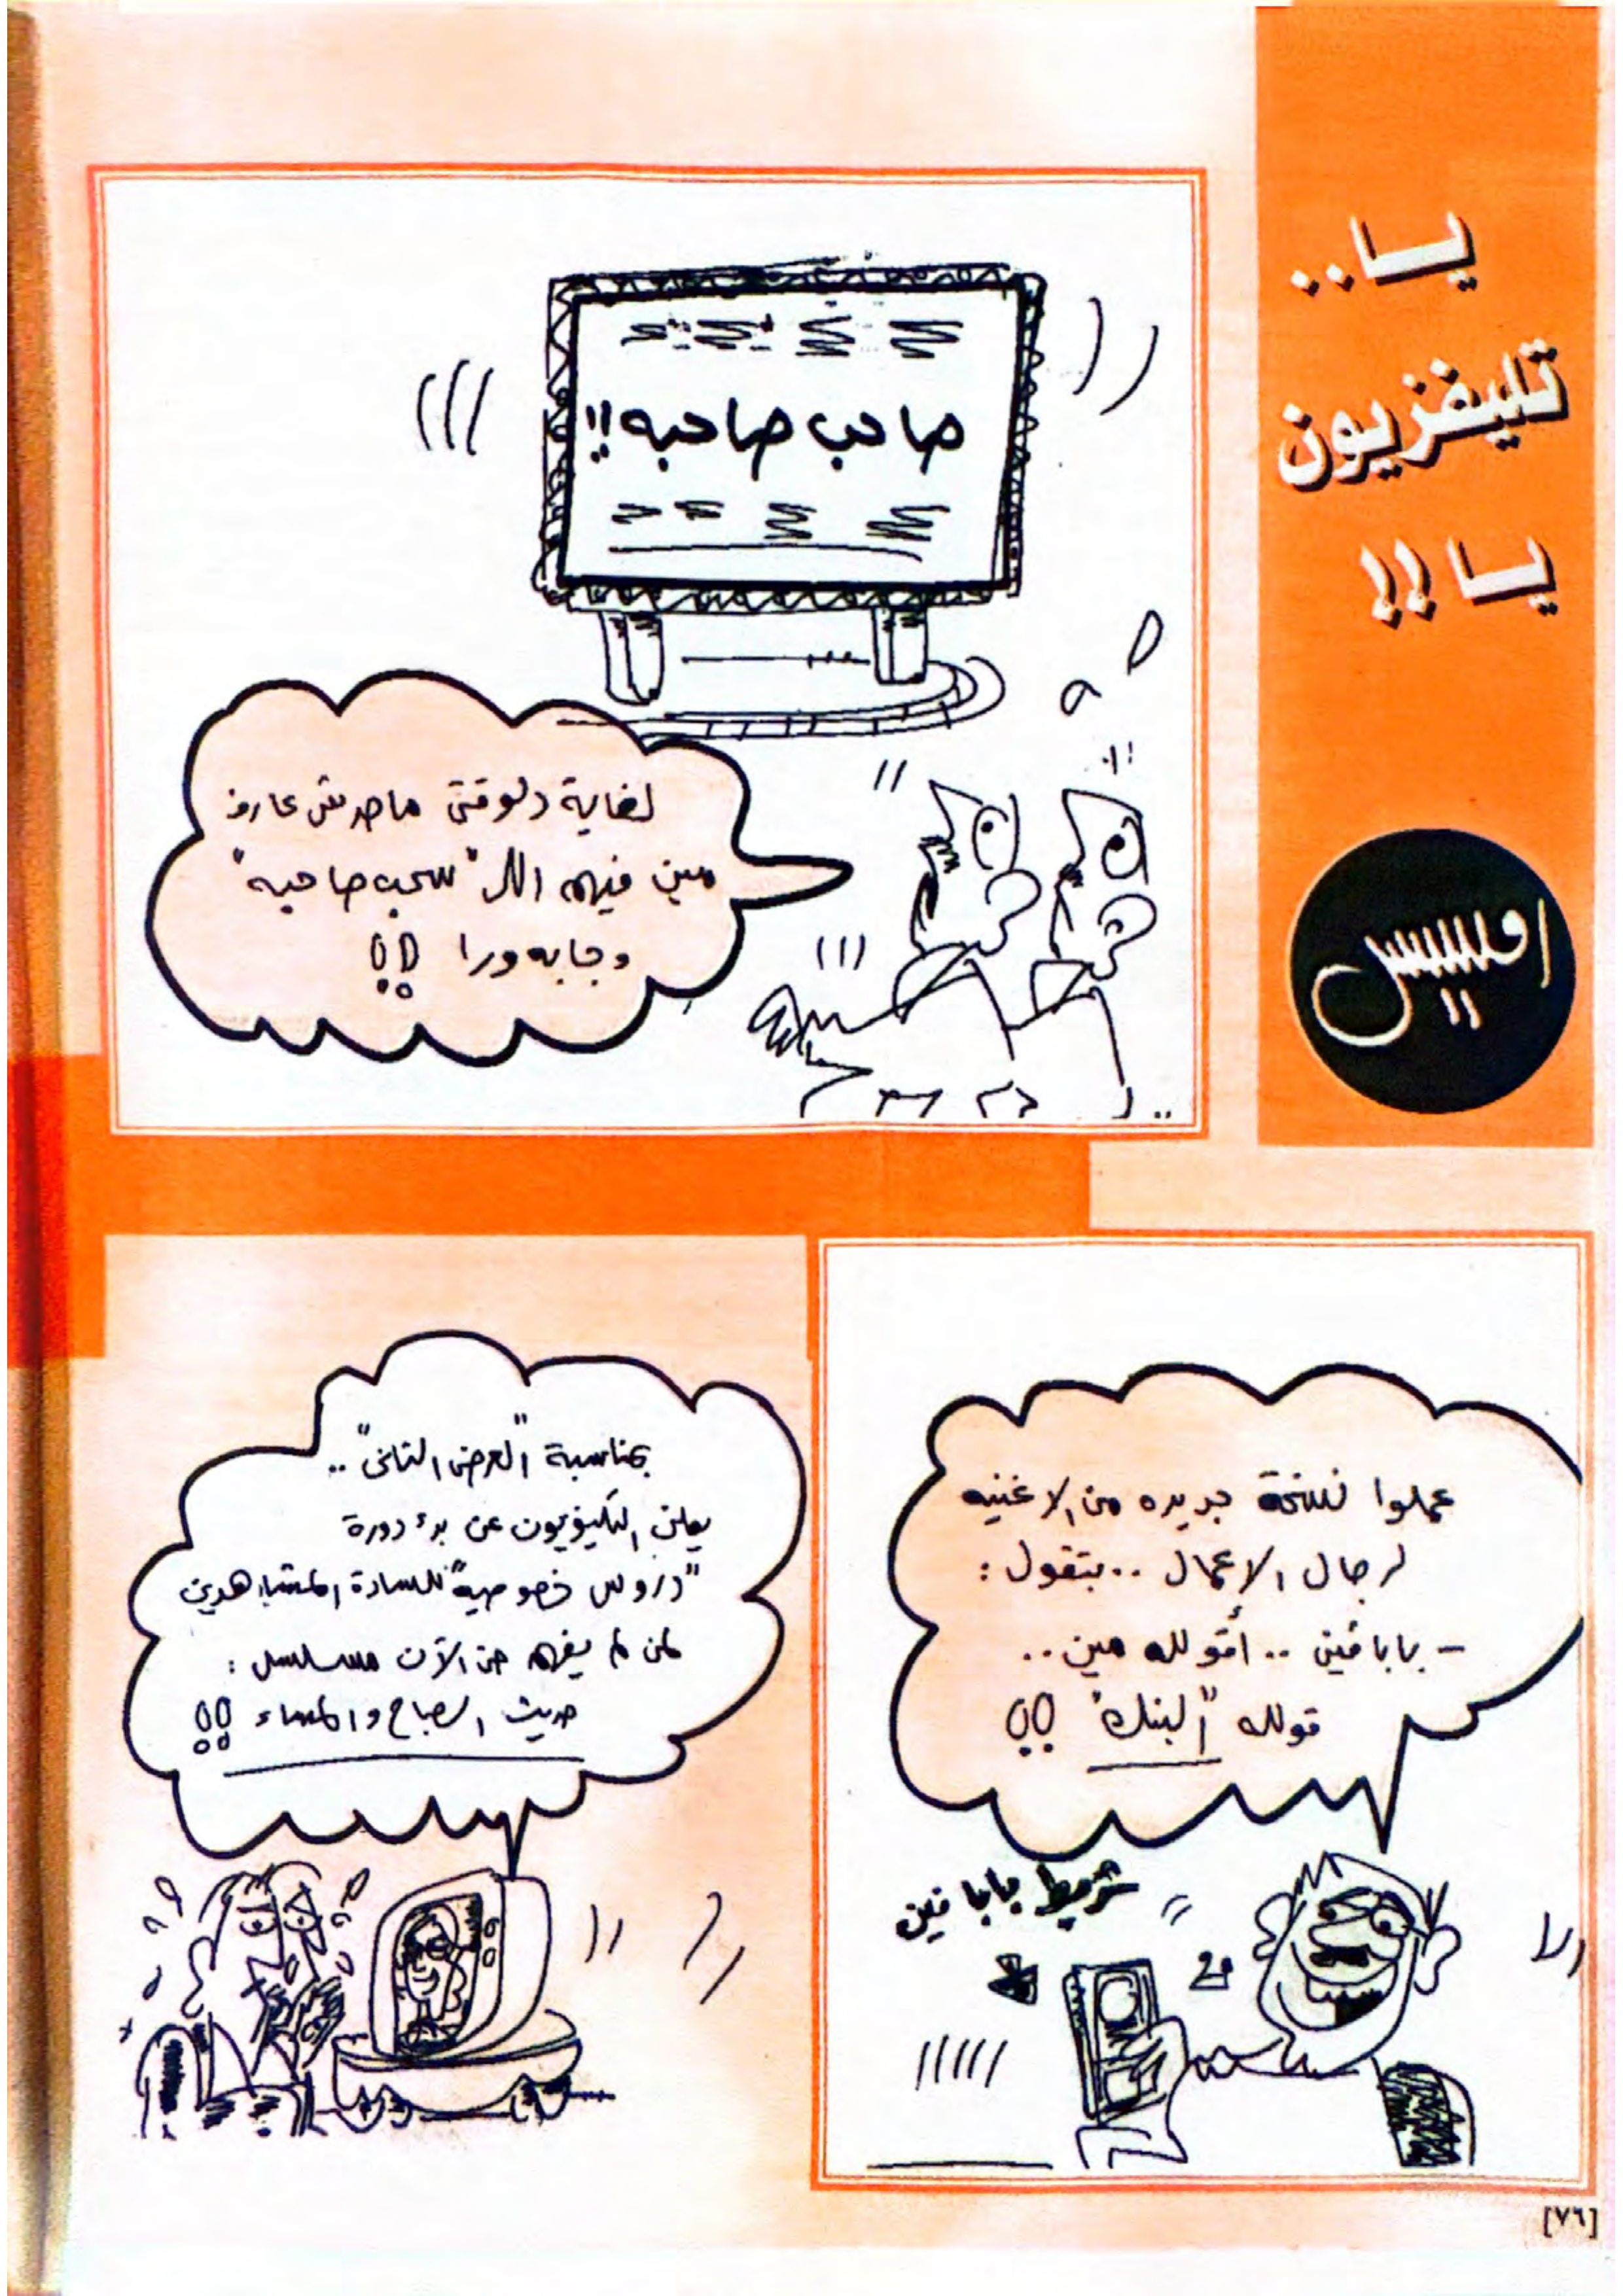 يا..
تليفزيون
يا!!
رمسيس
صاحب صاحبه!!
لغاية دلوقتى ماحدش عارف
مين فيهم اللى "سحب صاحبه"
وجابه ورا!!
عملوا نسخة جديده من الاغنيه
لرجال الاعمال .. بتقول:
- بابا فين .. أقوله مين ..
قوله "البنك"!!
شريط بابا فين
بمناسبة "العرض التانى"..
يعلن التليفزيون عن بدء دورة
"دروس خصوصية" للسادة المشاهدين
لمن لم يفهم حتى الآن مسلسل:
حديث الصباح والمساء!!
[٧٦]